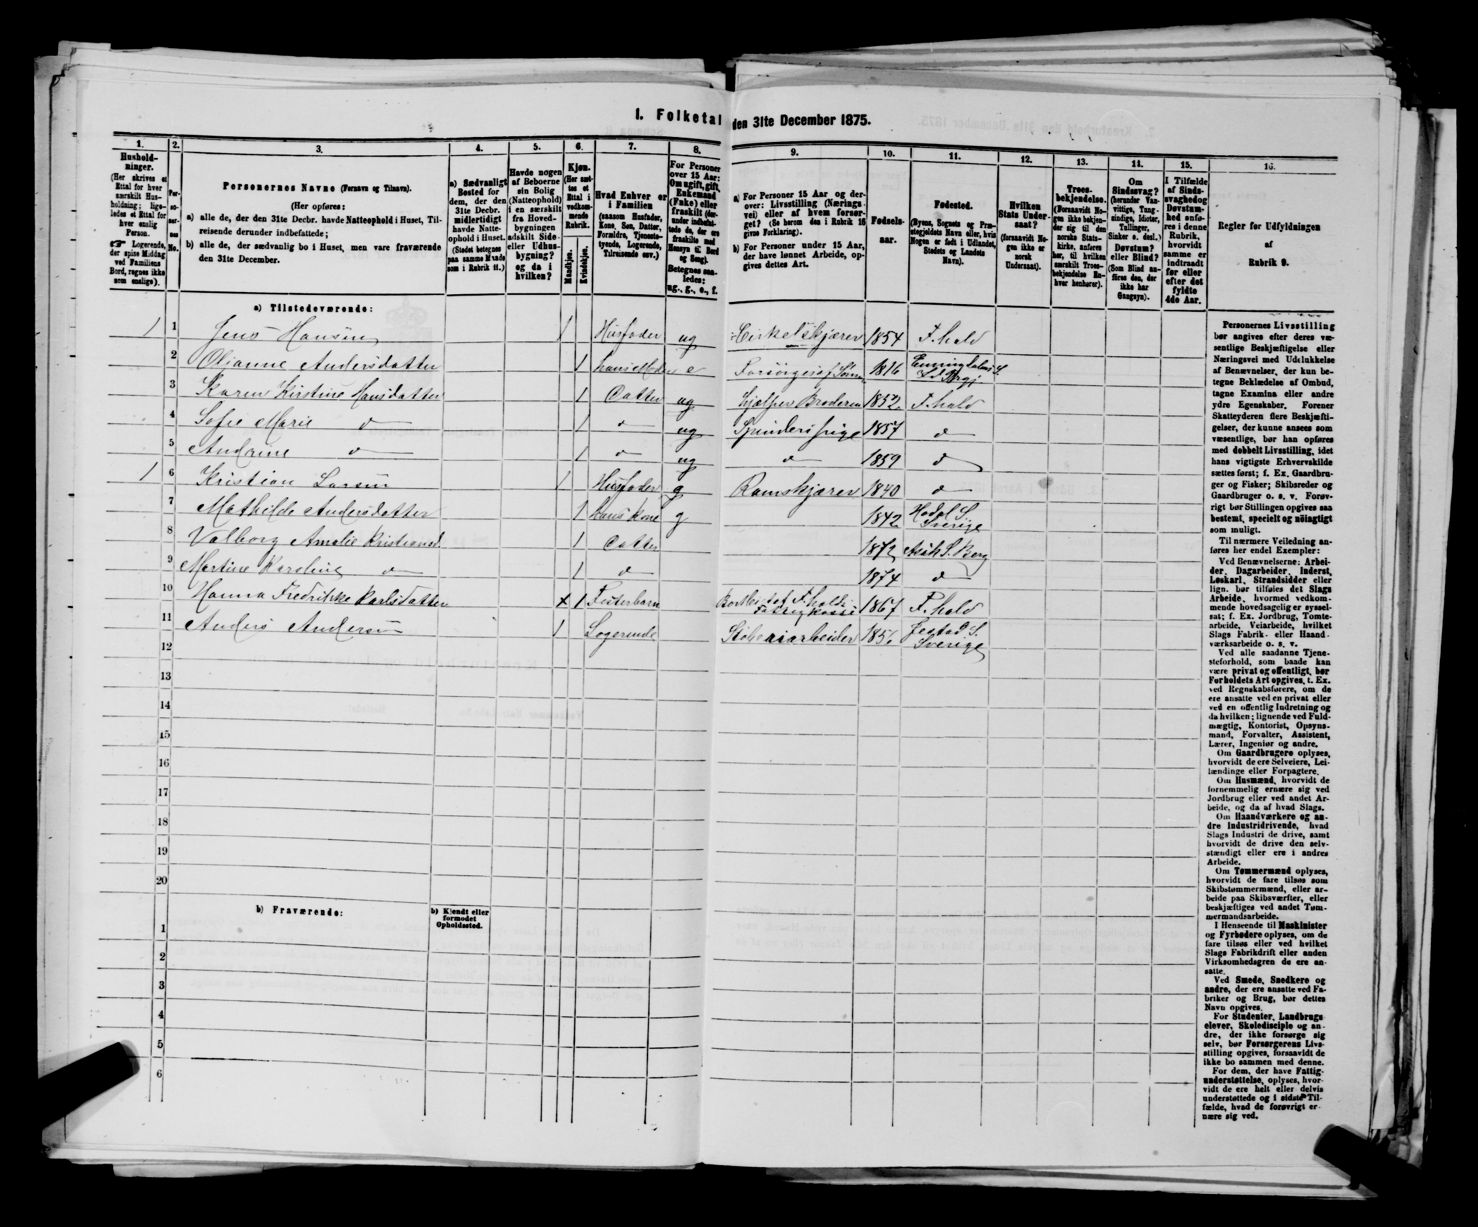 I. Folketal den 31te December 1875.
1.
Hushold-
ninger.
(Her skrives et
Ettal for hver
særskilt Hus-
holdning; lige-
ledes et Ettal for
hver enslig
Person.
☛ Logerende,
der spise Middag
ved Familiens
Bord, regnes ikke
som enslige).
2.
Per-
so-
ner-
nes
No.
3.
Personernes Navne (Fornavn og Tilnavn).
(Her opføres:
a) alle de, der den 31te Decbr. havde Natteophold i Huset, Til-
reisende derunder indbefattede;
b) alle de, der sædvanlig bo i Huset, men vare fraværende
den 31te December.
4.
a) Sædvanligt
Bosted for
dem, der den
31te Decbr.
midlertidigt
havde Natte-
ophold i Huset.
(Stedet betegnes
paa samme Maade
som i Rubrik 11.)
5.
Havde nogen
af Beboerne
sin Bolig
(Natteophold)
i en særskilt
fra Hoved-
bygningen
adskilt Side-
eller Udhus-
bygning?
og da i
hvilken?
6.
Kjøn.
(Her sæt-
tes et
Ettal i
vedkom-
mende
Rubrik.
Mandkjøn.
Kvindekjøn.
7.
Hvad Enhver er
i Familien
(saasom Husfader,
Kone, Søn, Datter,
Forældre, Tjeneste-
tyende, Logerende,
Tilreisende osv.)
8.
For Personer
over 15 Aar:
Om ugift, gift,
Enkemand
(Enke) eller
fraskilt
Betegnes saa-
ledes:
ug., g., e., f.
9.
a) For Personer 15 Aar og der-
over: Livsstilling (Nærings-
vei) eller af hvem forsør-
get? (Se herom den i Rubrik 16
givne Forklaring).
b) For Personer under 15 Aar,
der have lønnet Arbeide, op-
gives dettes Art.
10.
Fødsels-
aar.
11.
Fødested.
(Byens, Sognets og Præ-
stegjeldets Navn eller, hvis
Nogen er født i Udlandet,
Stedets og Landets
Navn).
12.
Hvilken
Stats Under-
saat?
(forsaavidt No-
gen ikke er
norsk
Undersaat).
13.
Troes-
bekjendelse.
(Forsaavidt No-
gen ikke bekjen-
der sig til den
norske Stats-
kirke, anføres
her, til hvilken
særskilt Troes-
bekjendelse En-
hver henhører).
14.
Om
Sindssvag?
(herunder Van-
vittige, Tung-
sindige, Idioter,
Tullinger,
Sinker o. desl.)
Døvstum?
eller Blind?
(Som Blind an-
føres den, der
ikke har
Gangsyn).
15.
I Tilfælde
af Sinds-
svaghed og
Døvstum-
hed anfø-
res i denne
Rubrik,
hvorvidt
samme er
indtraadt
før eller
efter det
fyldte
4de Aar.
16.
Regler for Udfyldningen
af
Rubrik 9.
a) Tilstedeværende:
1 1 Jens Hansen 1 Husfader ug Cirkelskjærer 1854 F.hald
2 Oljanne Andersdatter 1 hans Moder e Forsørges af Sønnen 1816
3 Karen Kirstine Hansdatter 1 Datter ug hjælper Broderen 1852 F.hald
4 Sofie Marie d 1 d ug Spinderipige 1857 d
5 Andrine d 1 d ug d 1859 d
1 6 Kristian Larsen 1 Husfader g Ramskjærer 1840 d
7 Mathilde Andersdatter 1 hans Kone g 1842 Hodal S. Sverige
8 Valborg Amalie Kristiansd. 1 Datter 1872 Asak S. Berg
9 Martine Karoline d 1 d 1874 d
10 Hanna Fredrikke Karlsdatter x 1 Fosterbarn Bortsat af F.halds Fattigkasse 1867 F.hald
11 Anders Andersen 1 Logerende Støberiarbeider 1856 Sverige
12
13
14
15
16
17
18
19
20
b) Fraværende:
b) Kjendt eller
formodet
Opholdssted.
1
2
3
4
5
6
Personernes Livsstilling
bør angives efter deres væ-
sentlige Beskjæftigelse eller
Næringsvei med Udelukkelse
af Benævnelser, der kun be-
tegne Beklædelse af Ombud,
tagne Examina eller andre
ydre Egenskaber. Forener
Skatteyderen flere Beskjæfti-
gelser, der kunne ansees som
væsentlige, bør han opføres
med dobbelt Livsstilling, idet
hans vigtigste Erhvervskilde
sættes først; f. Ex. Gaardbru-
ger og Fisker; Skibsreder og
Gaardbruger o. s. v. Forøv-
rigt bør Stillingen opgives saa
bestemt, specielt og nøiagtigt
som muligt.
Til nærmere Veiledning an-
føres her endel Exempler:
Ved Benævnelserne: Arbei-
der, Dagarbeider, Inderst,
Løskarl, Strandsidder eller
lign. bør tilføies det Slags
Arbeide, hvormed vedkom-
mende hovedsagelig er syssel-
sat; f. Ex. Jordbrug, Tomte-
arbeide, Veiarbeide, hvilket
Slags Fabrik- eller Haand-
værksarbeide o. s. v.
Ved alle saadanne Tjene-
steforhold, som baade kan
være privat og offentligt, bør
Forholdets Art opgives, f. Ex.
ved Regnskabsførere, om de
ere ansatte ved en privat eller
ved en offentlig Indretning og
da hvilken; lignende ved Fuld-
mægtig, Kontorist, Opsyns-
mand, Forvalter, Assistent,
Lærer, Ingeniør og andre.
Om Gaardbrugere oplyses,
hvorvidt de ere Selveiere, Lei-
lændinge eller Forpagtere.
Om Husmænd, hvorvidt de
fornemmelig ernære sig ved
Jordbrug eller ved andet Ar-
beide, og da af hvad Slags.
Om Haandværkere og an-
dre Industridrivende, hvad
Slags Industri de drive, samt
hvorvidt de drive den selv-
stændigt eller ere i andres
Arbeide.
Om Tømmermænd oplyses,
hvorvidt de fare tilsøs som
Skibstømmermænd, eller ar-
beide paa Skibsværfter, eller
beskjæftiges ved andet Tøm-
mermandsarbeide.
I Henseende til Maskinister
og Fyrbødere oplyses, om de
fare tilsøs eller ved hvilket
Slags Fabrikdrift eller anden
Virksomhedsgren de ere an-
satte.
Ved Smede, Snedkere og
andre, der ere ansatte ved Fa-
briker og Brug, bør dettes
Navn opgives.
For Studenter, Landbrugs-
elever, Skoledisciple og an-
dre, der ikke forsørge sig
selv, bør Forsørgerens Livs-
stilling opgives, forsaavidt de
ikke bo sammen med denne.
For dem, der have Fattig-
understøttelse, oplyses, hvor-
vidt de ere helt eller delvis
understøttede og i sidste Til-
fælde, hvad de forøvrigt er-
nære sig ved.